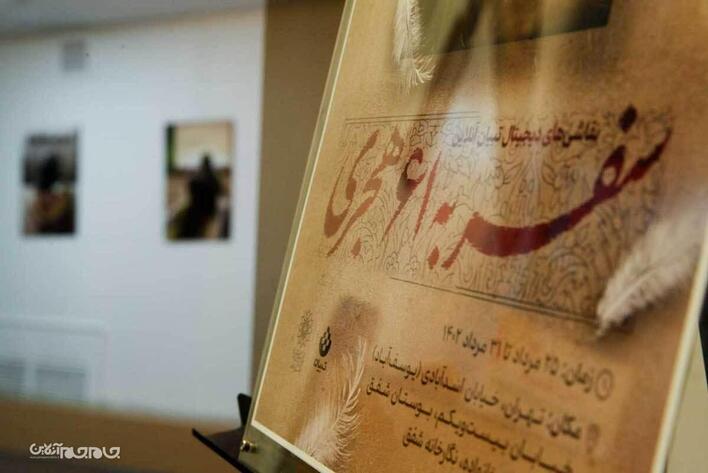 نقاشی‌های دیجیتال تبیان آنلاین
سفر به ۶۱ هجری
زمان: ۲۵ مرداد تا ۳۱ مرداد ۱۴۰۲
مکان: تهران، خیابان اسدآبادی (یوسف‌آباد)
خیابان بیست‌ویکم، بوستان شفق
نگارخانه شفق
تبیان
جام‌جم آنلاین